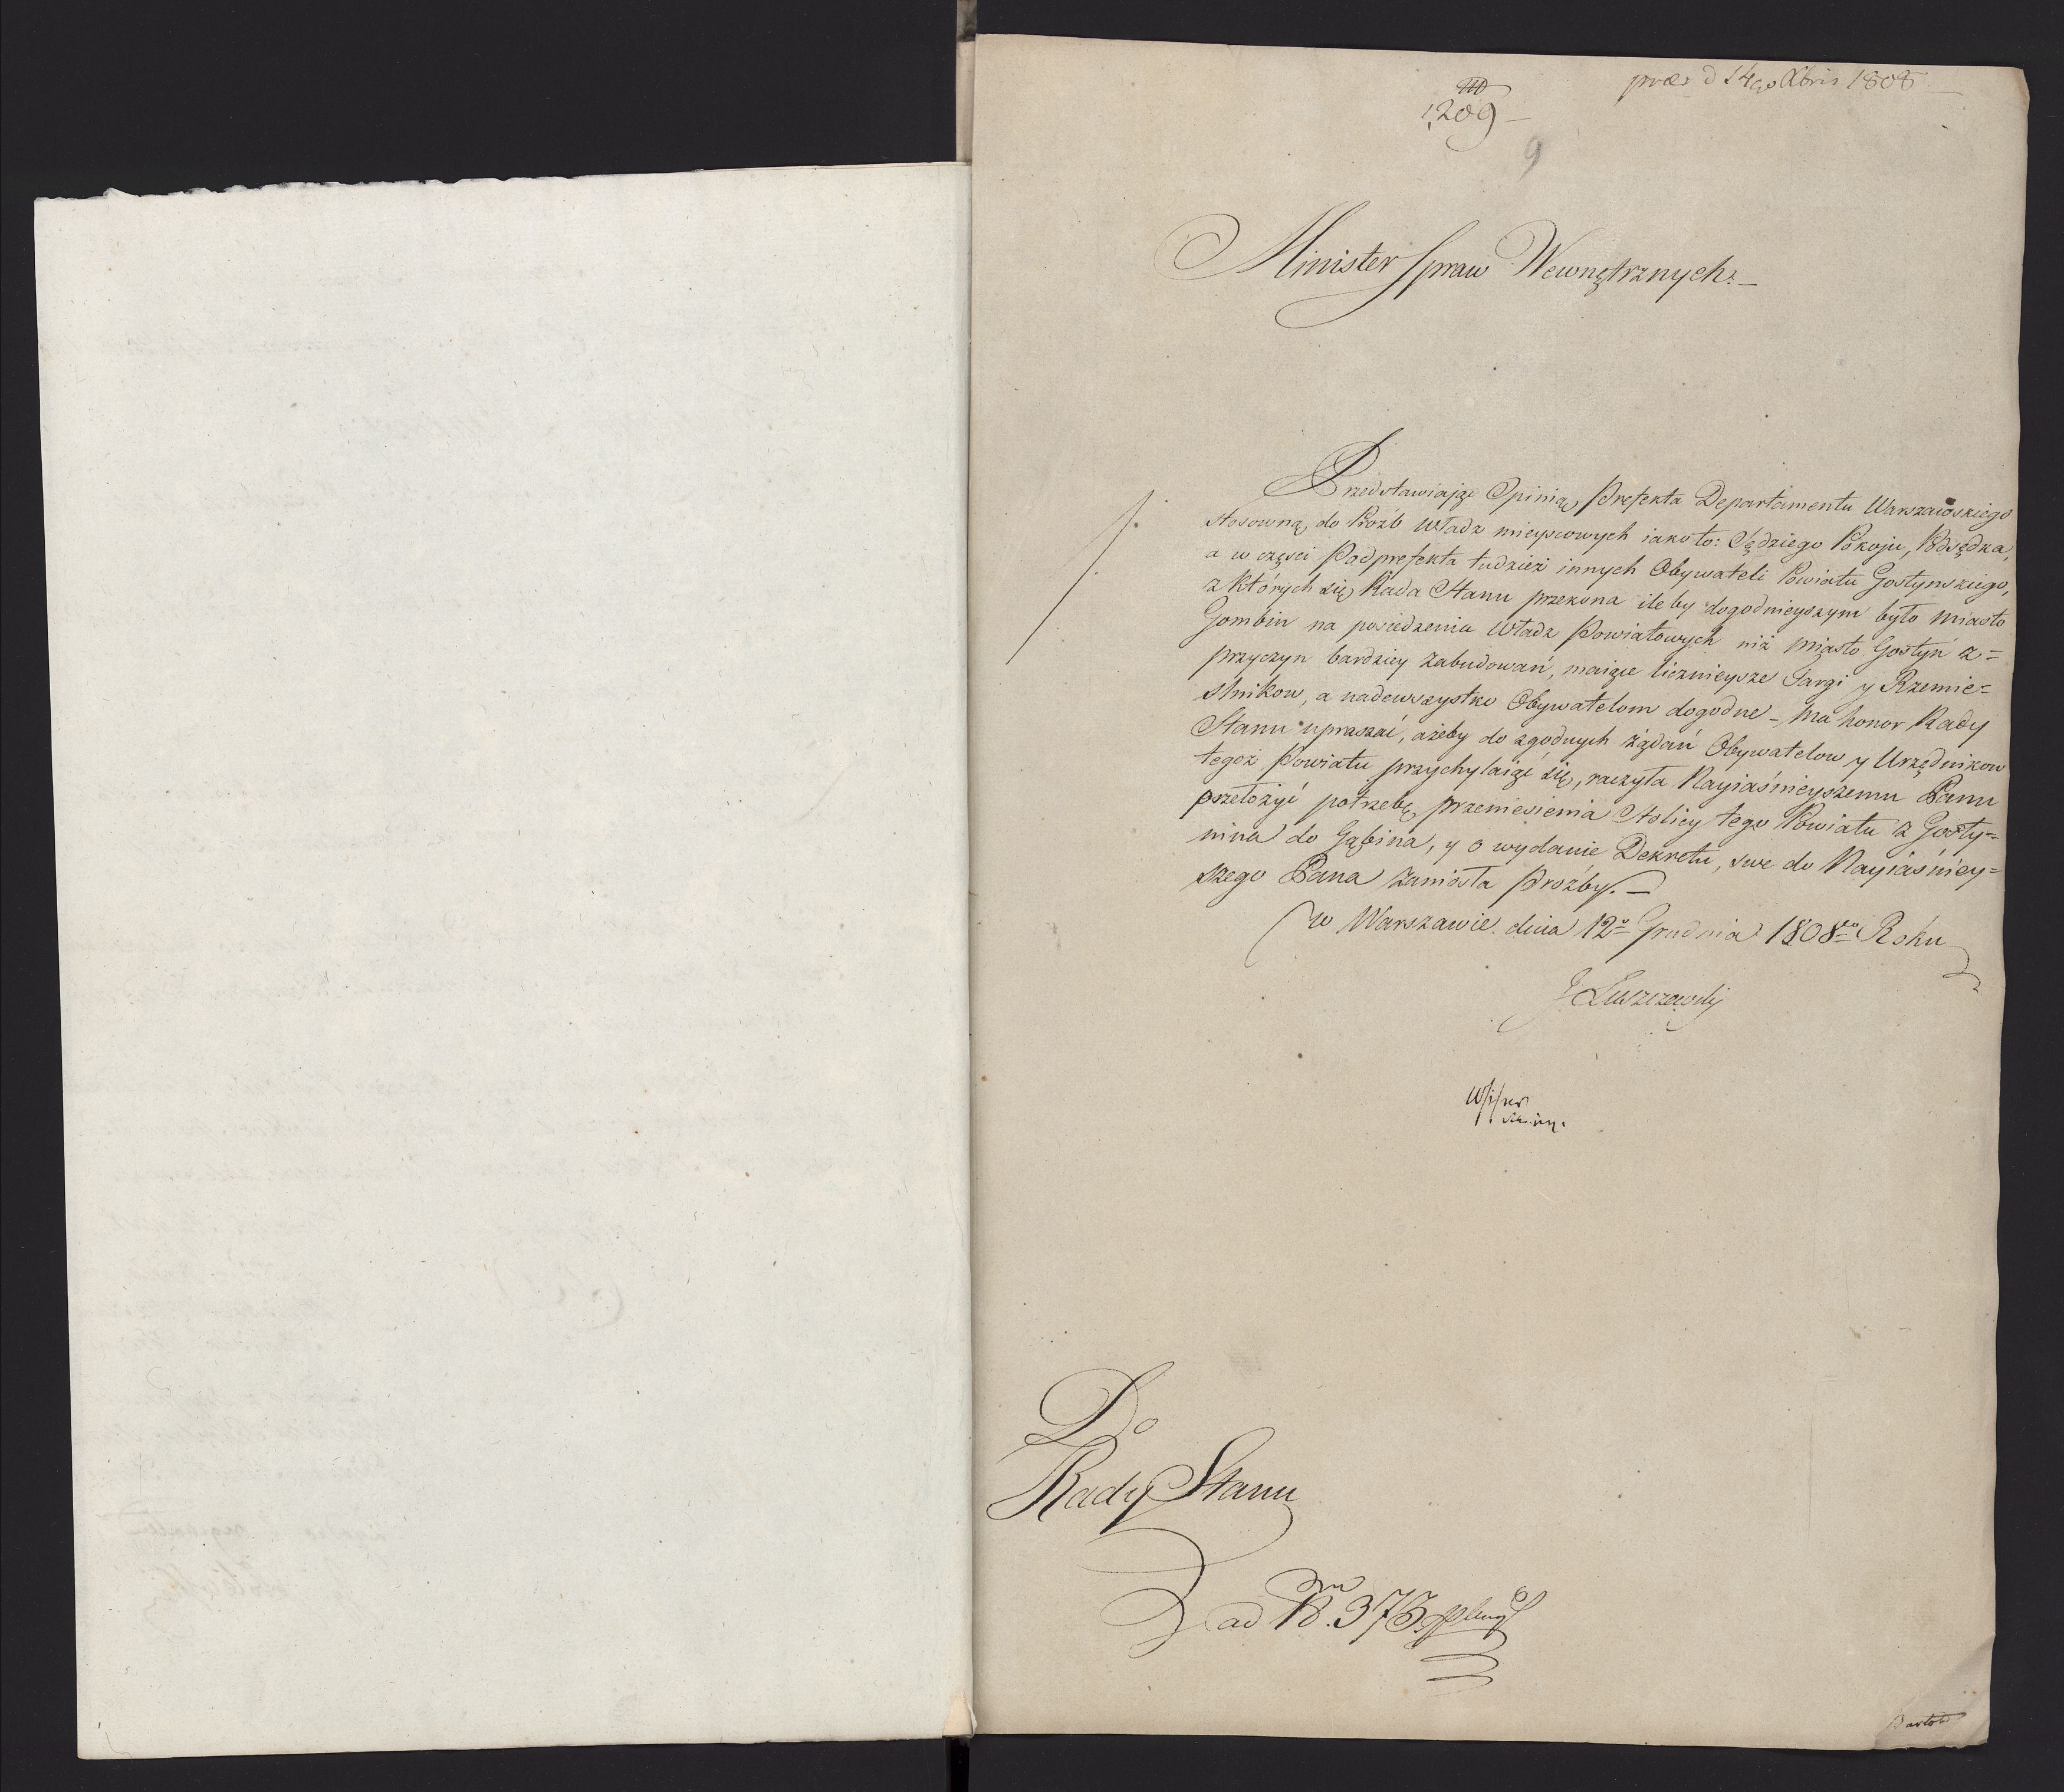 præs d 14go Xbris 1808
1209
9
Minister Spraw Wewnętrznych.
Przedstawiaiąc Opinią Prefekta Departamentu Warszawskiego
stosowną do Prożb Władz mieyscowych iako to: Sędziego Pokoju, Podsędka,
a w częsci Podprefekta tudzież innych Obywateli Powiatu Gostynskiego,
z których się Rada Stanu przekona ile by dogodnieyszym było Miasto
Gombin na posiedzenia Władz Powiatowych niż miasto Gostyń z=
przyczyn bardziey zabudowań, maiące licznieysze Targi y Rzemie=
slnikow, a nadewszystko Obywatelom dogodne – ma honor Rady
Stanu upraszać, ażeby do zgodnych żądań Obywatelow y Urzędnikow
tegoż Powiatu przychylaiąc się, raczyła Nayiaśnieyszemu Panu
przełożyć potrzebę przeniesienia Stolicy tego Powiatu z Gosty=
nina do Gąbina, y o wydanie Dekretu, swe do Nayiaśniey=
szego Pana zaniosła Prożby. –
w Warszawie dnia 12o Grudnia 1808go Roku
J Łuszczewski
Do
Rady Stanu
ad Nrm 375.
Bartol